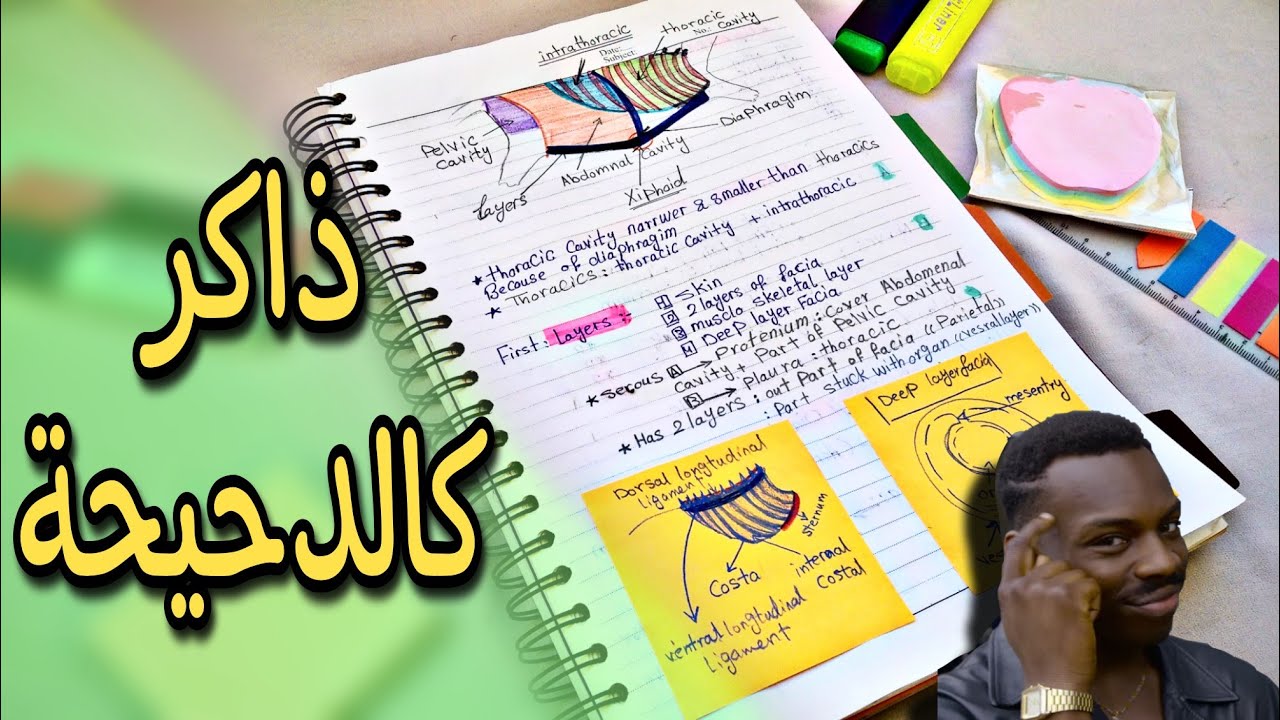 ذاكر
كالدحيحة
intrathoracic
thoracic
cavity
Date:
Subject:
No.:
Pelvic
cavity
layers
Abdomnal cavity
Xiphoid
Diaphragim
* thoracic cavity narruwer & smaller than thoracics
Because of diaphragim
* Thoracics: thoratic cavity + intrathoracic
First: layers:
1 skin
2 2 layers of facia
3 musclo skeletal layer
4 Deep layer facia
* serous A → Protenium: cover Abdomenal
cavity + Part of Pelvic cavity
B → Plaura: thoracic
* Has 2 layers: out Part of facia «Parietal»
: Part stuck with organ «vesral layer»
Dorsal longtudinal
ligament
sternum
Costa
internal
costal
ventral longtudinal
ligament
Deep layer facial
mesentry